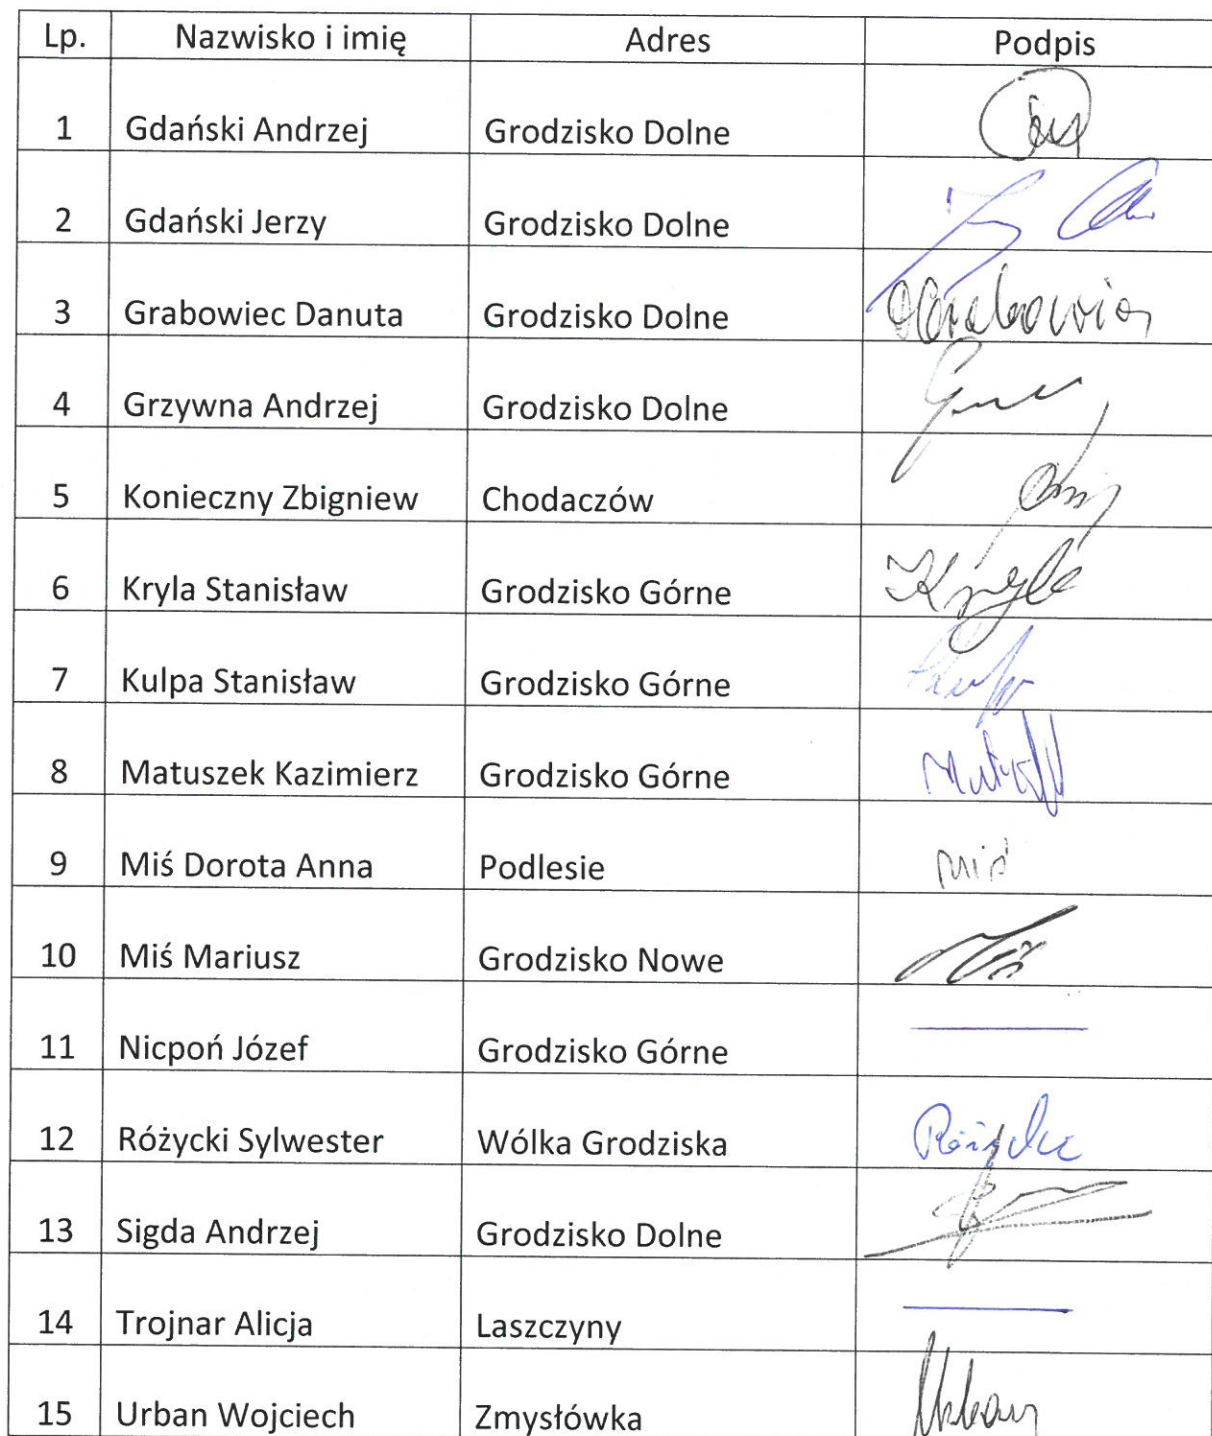 Lp. Nazwisko i imię Adres Podpis
1 Gdański Andrzej Grodzisko Dolne
2 Gdański Jerzy Grodzisko Dolne
3 Grabowiec Danuta Grodzisko Dolne
4 Grzywna Andrzej Grodzisko Dolne
5 Konieczny Zbigniew Chodaczów
6 Kryla Stanisław Grodzisko Górne Kryla
7 Kulpa Stanisław Grodzisko Górne
8 Matuszek Kazimierz Grodzisko Górne
9 Miś Dorota Anna Podlesie Miś
10 Miś Mariusz Grodzisko Nowe Miś
11 Nicpoń Józef Grodzisko Górne
12 Różycki Sylwester Wólka Grodziska
13 Sigda Andrzej Grodzisko Dolne
14 Trojnar Alicja Laszczyny
15 Urban Wojciech Zmysłówka Urban